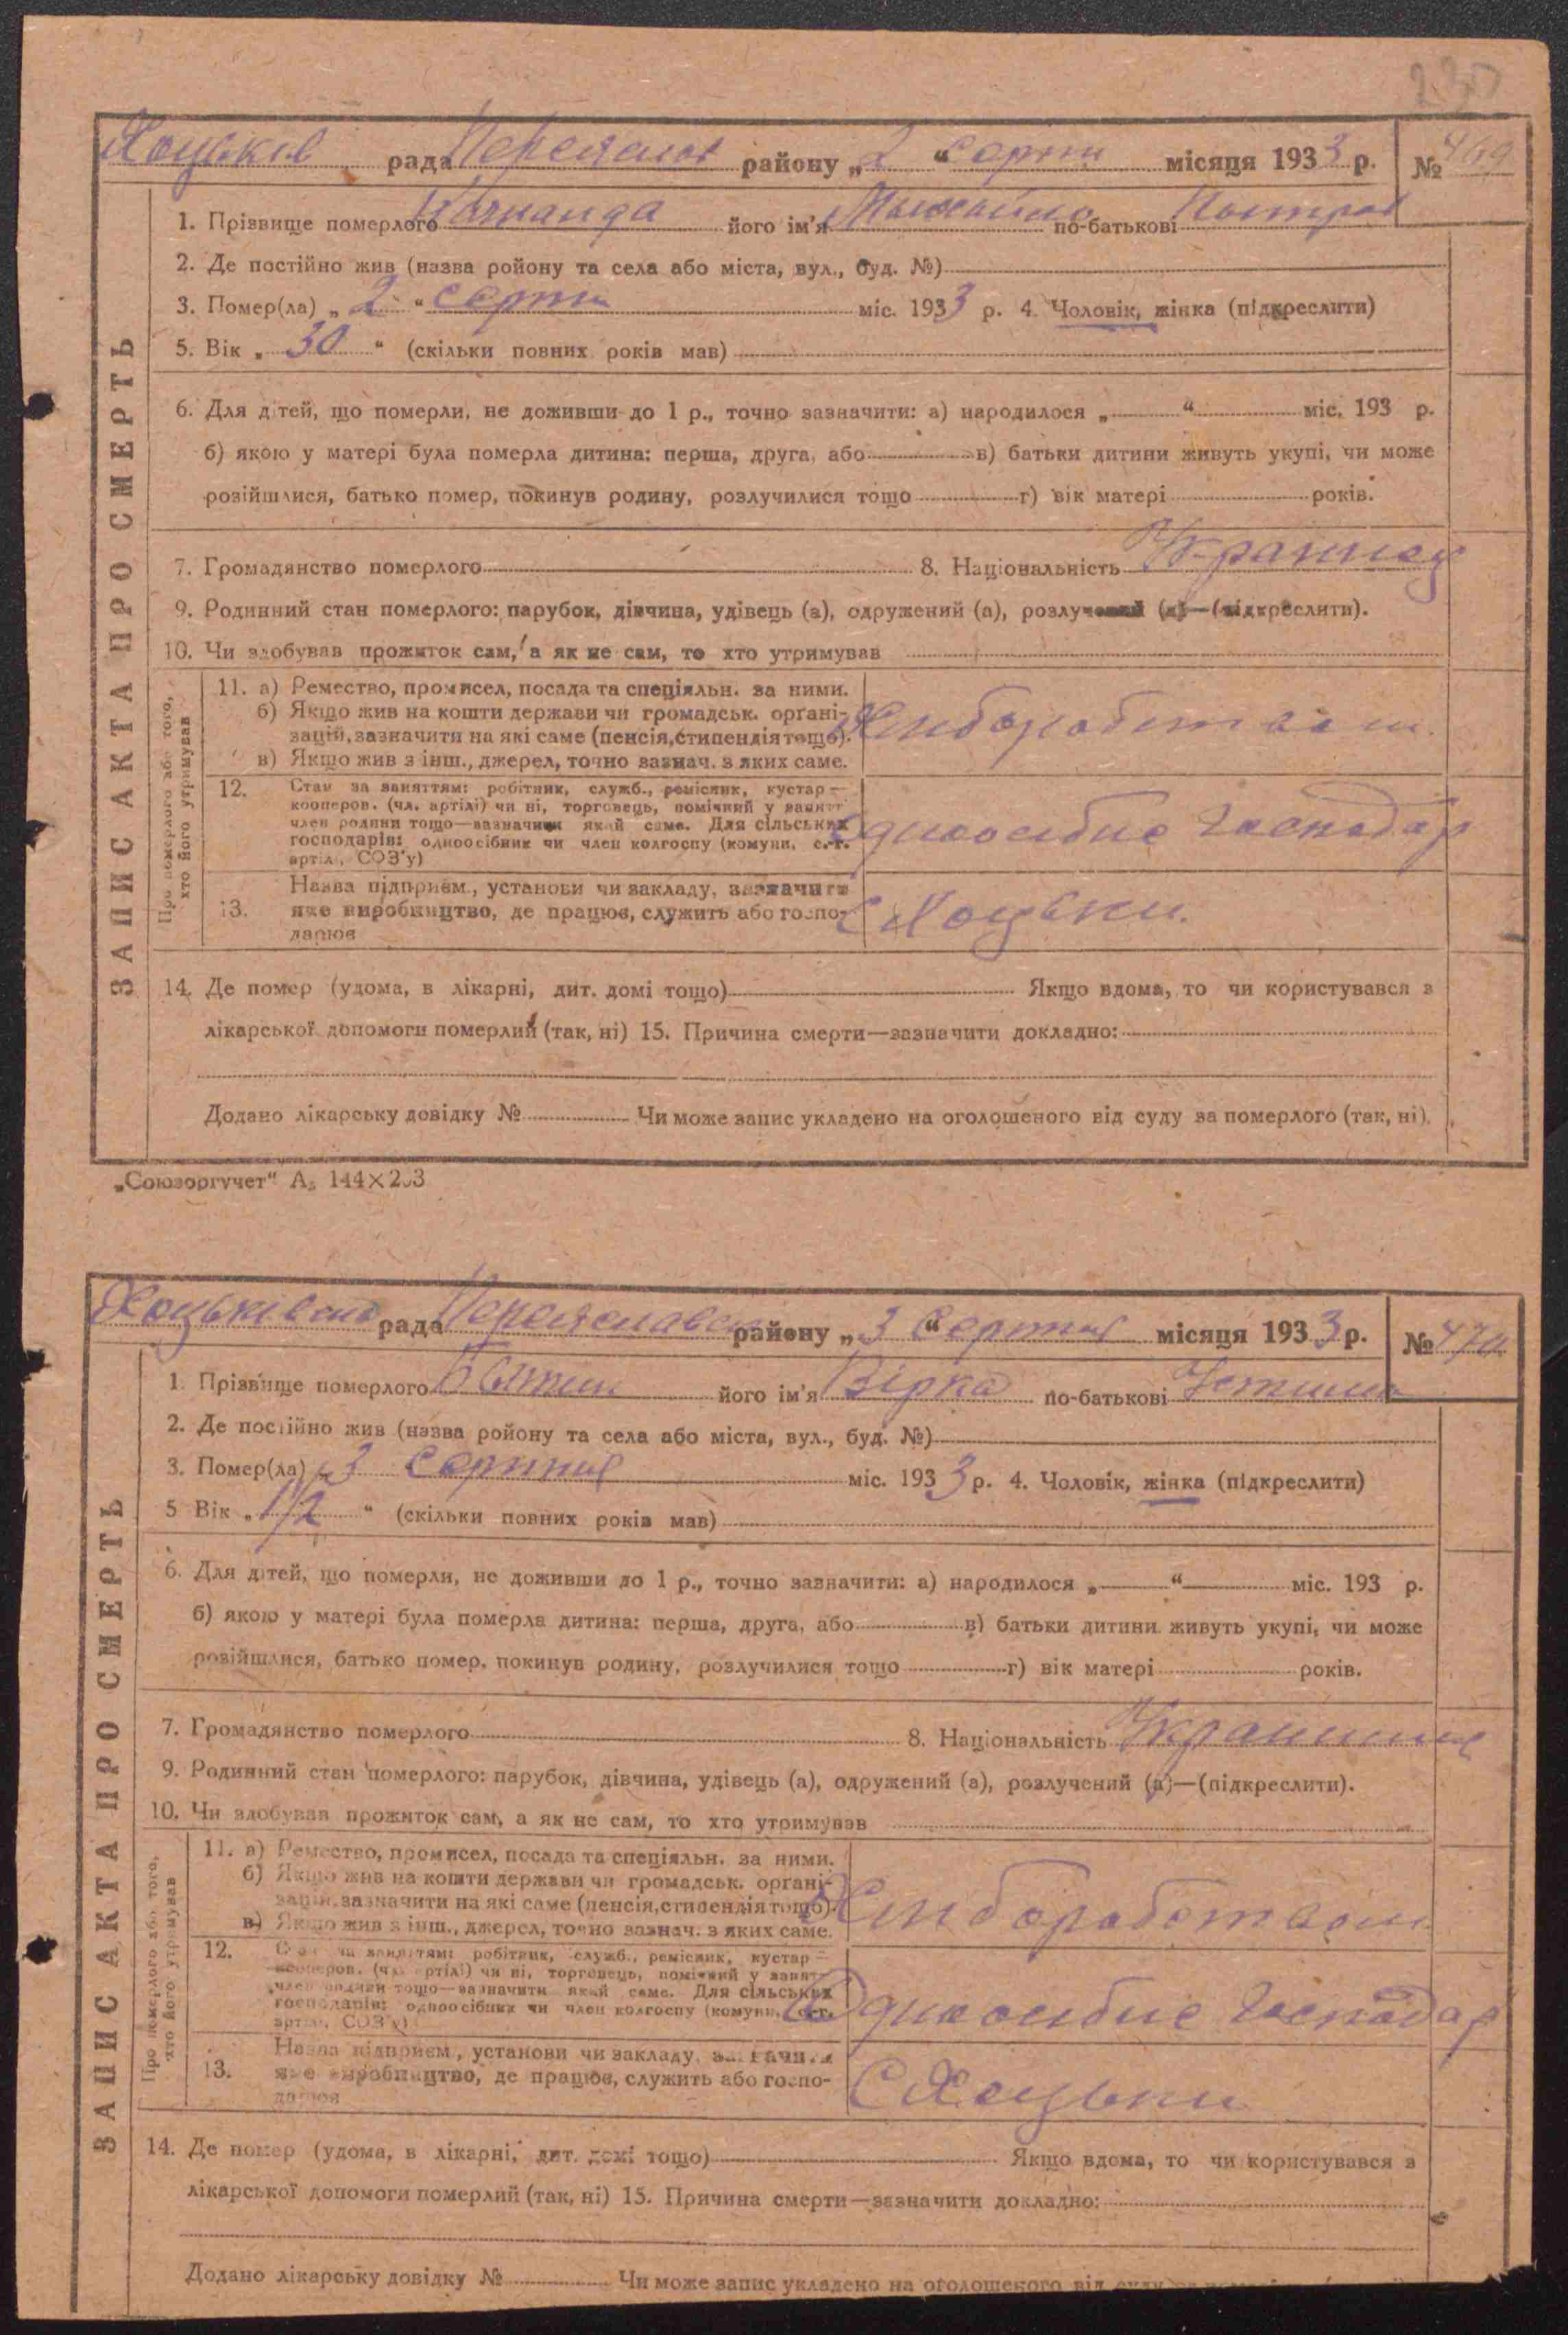 230
Хоцьків рада Переяслов району „2“ серпн місяця 1933 р. № 469
ЗАПИС АКТА ПРО СМЕРТЬ
1. Прізвище померлого його ім'я Михайло по-батькові
2. Де постійно жив (назва ройону та села або міста, вул., буд. №)
3. Помер(ла) „2“ серпн міс. 1933 р. 4. Чоловік, жінка (підкреслити)
5. Вік „30“ (скільки повних років мав)
6. Для дітей, що померли, не доживши до 1 р., точно зазначити: а) народилося „ “ міс. 193 р.
б) якою у матері була померла дитина: перша, друга, або в) батьки дитини живуть укупі, чи може
розійшлися, батько помер, покинув родину, розлучилися тощо г) вік матері років.
7. Громадянство померлого 8. Національність Украинец
9. Родинний стан померлого: парубок, дівчина, удівець (а), одружений (а), розлучений (а)—(підкреслити).
10. Чи здобував прожиток сам, а як не сам, то хто утримував
Про померлого або того,
хто його утримував
11. а) Ремество, промисел, посада та спеціяльн. за ними.
б) Якщо жив на кошти держави чи громадськ. орґані-
зацій, зазначити на які саме (пенсія, стипендія тощо).
в) Якщо жив з інш., джерел, точно зазнач. з яких саме.
12. Стан за заняттям: робітник, служб., ремісник, кустар—
кооперов. (чл. артілі) чи ні, торговець, помічний у занятт
член родини тощо—зазначити який саме. Для сільських
господарів: одноосібник чи член колгоспу (комуни, с.-г.
артілі, СОЗ'у)
господар
13. Назва підприєм., установи чи закладу, зазначити
яке виробництво, де працює, служить або госпо-
дарює
С Хоцьки.
14. Де помер (удома, в лікарні, дит. домі тощо) Якщо вдома, то чи користувався з
лікарської допомоги померлий (так, ні) 15. Причина смерти—зазначити докладно:
Додано лікарську довідку № Чи може запис укладено на оголошеного від суду за померлого (так, ні).
„Союзоргучет“ А₅ 144×203
Хоцьківська рада Переяславськ району „3“ Серпня місяця 1933 р. № 470
ЗАПИС АКТА ПРО СМЕРТЬ
1. Прізвище померлого його ім'я Вірка по-батькові
2. Де постійно жив (назва ройону та села або міста, вул., буд. №)
3. Помер(ла) „3 Серпня міс. 1933 р. 4. Чоловік, жінка (підкреслити)
5 Вік „1/2“ (скільки повних років мав)
6. Для дітей, що померли, не доживши до 1 р., точно зазначити: а) народилося „ “ міс. 193 р.
б) якою у матері була померла дитина: перша, друга, або в) батьки дитини живуть укупі, чи може
розійшлися, батько помер, покинув родину, розлучилися тощо г) вік матері років.
7. Громадянство померлого 8. Національність
9. Родинний стан померлого: парубок, дівчина, удівець (а), одружений (а), розлучений (а)—(підкреслити).
10. Чи здобував прожиток сам, а як не сам, то хто утримував
Про померлого або того,
хто його утримував
11. а) Ремество, промисел, посада та спеціяльн. за ними.
б) Якщо жив на кошти держави чи громадськ. орґані-
зацій, зазначити на які саме (пенсія, стипендія тощо).
в) Якщо жив з інш., джерел, точно зазнач. з яких саме.
12. Стан за заняттям: робітник, служб., ремісник, кустар—
кооперов. (чл. артілі) чи ні, торговець, помічний у занят
член родини тощо—зазначити який саме. Для сільських
господарів: одноосібник чи член колгоспу (комуни, с.-г.
артілі, СОЗ'у)
господар
13. Назва підприєм., установи чи закладу, зазначити
яке виробництво, де працює, служить або госпо-
дарює
С Хоцьки
14. Де помер (удома, в лікарні, дит. домі тощо) Якщо вдома, то чи користувався з
лікарської допомоги померлий (так, ні) 15. Причина смерти—зазначити докладно:
Додано лікарську довідку № Чи може запис укладено на оголошеного від суду